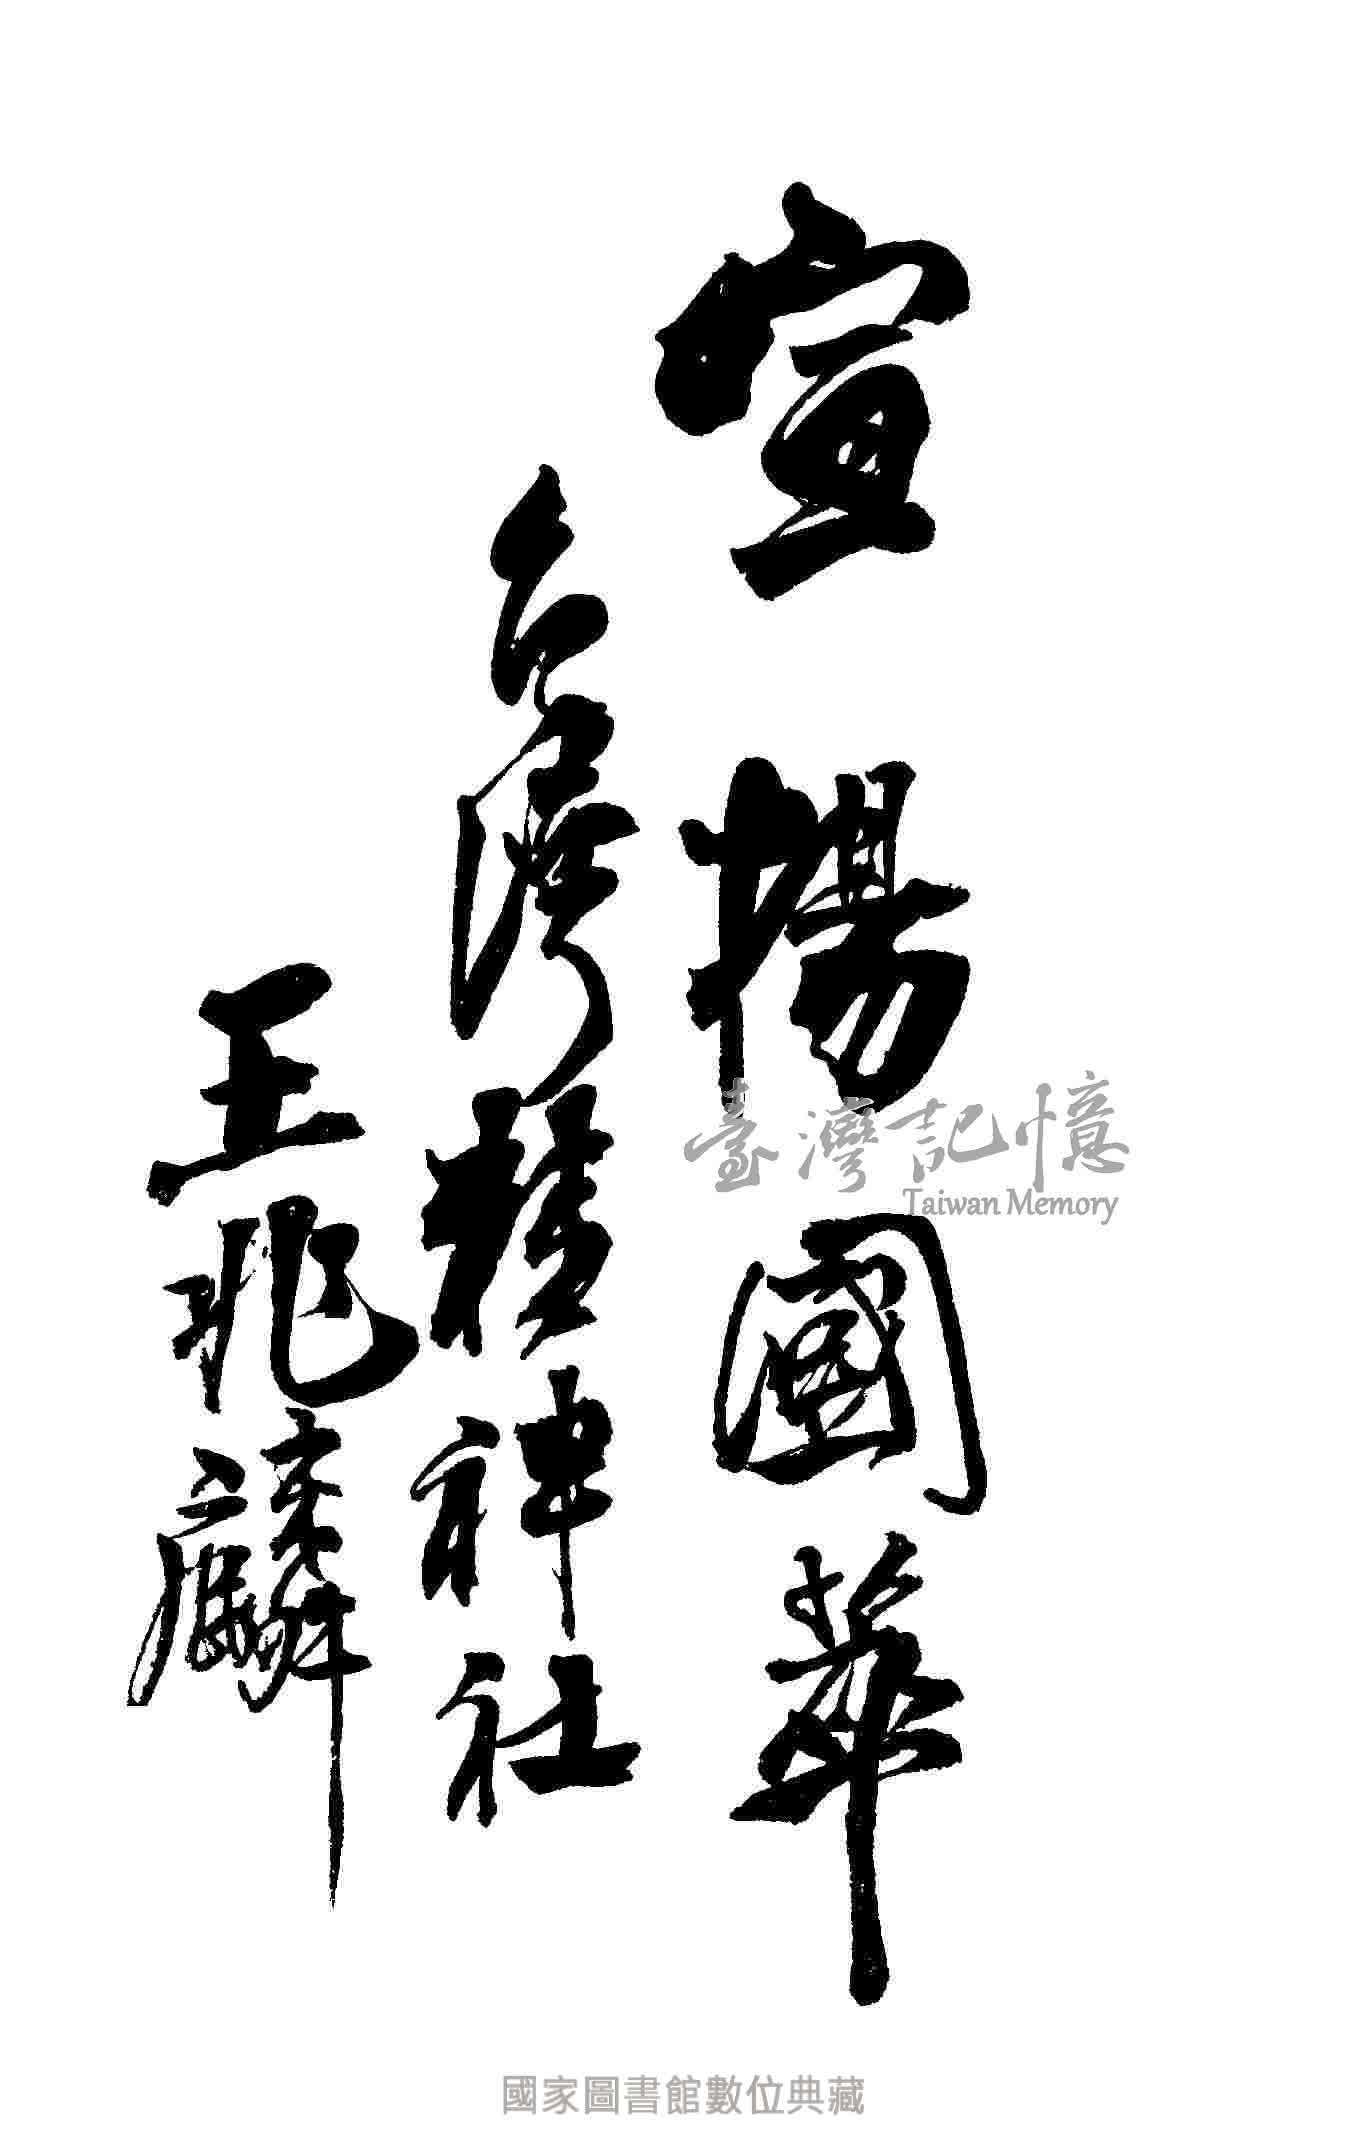 宣揚國華
台灣精神社
王兆麟
臺灣記憶
Taiwan Memory
國家圖書館數位典藏